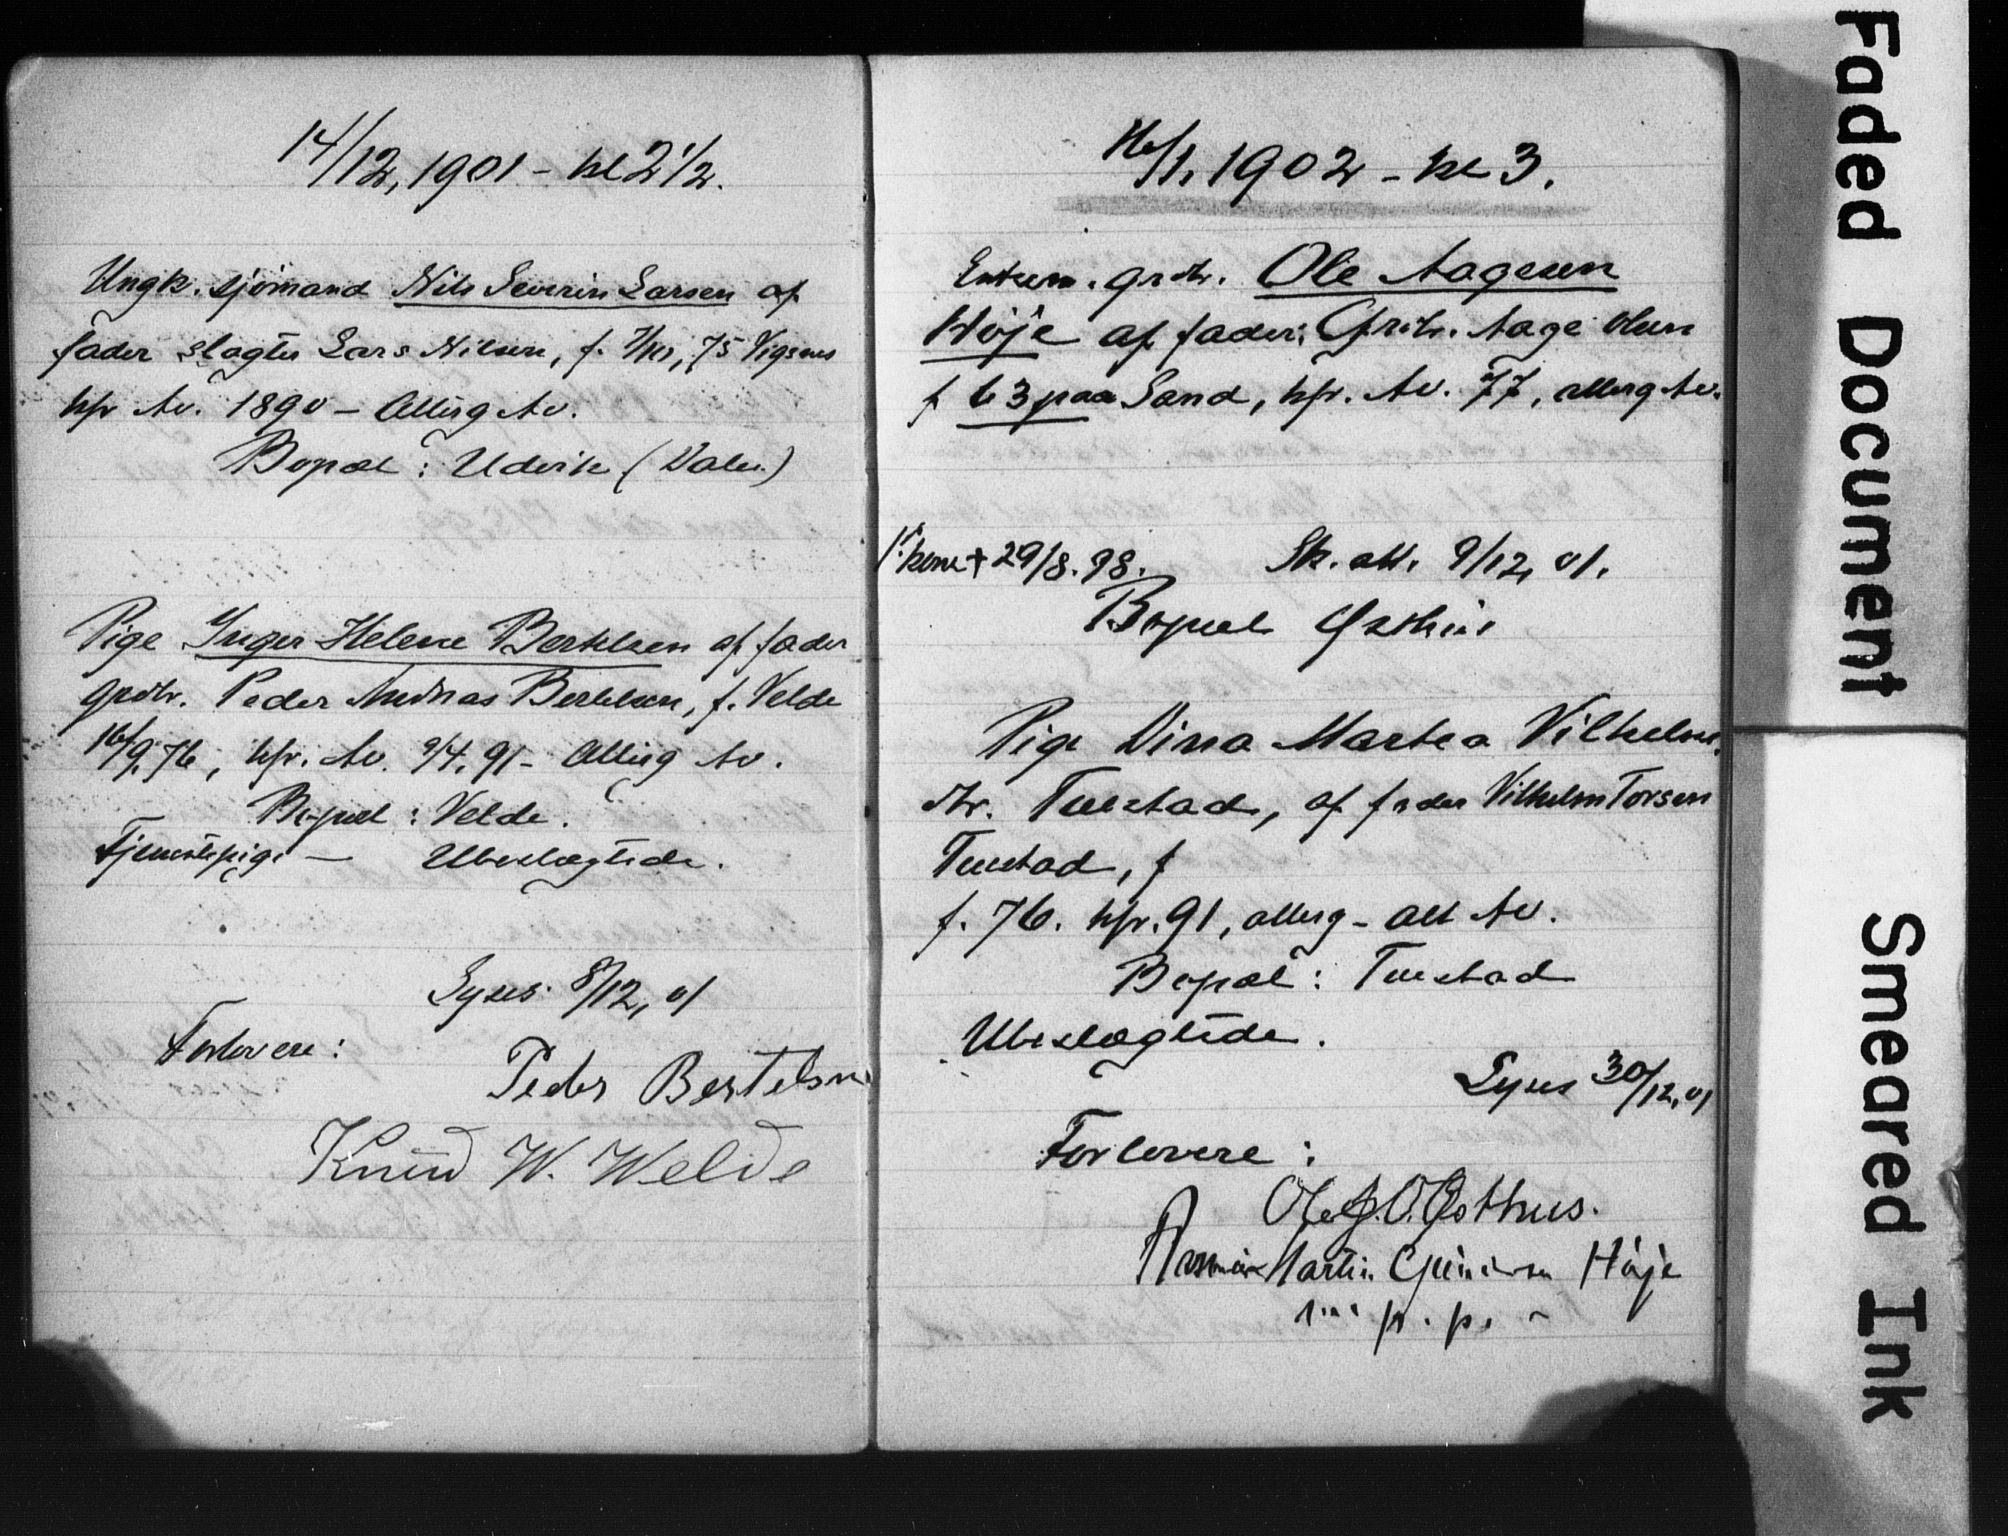 14/12, 1901 - kl 2 1/2.
Ungk. sjømand Nils Severin Larsen af
fader slagter Lars Nilsen, f. 75 Vigsnes
kfr Av. 1890 - Allerg Av.
Bopæl : Udvik (Valen.)
Pige Inger Helene Bertelsen af fader
grdbr. Peder Andreas Bertelsen, f. Velde
16/9, 76, kfr. Av. 9/4, 91 - Allerg Av.
Bopæl : Velde.
Tjenestepige - Ubeslægtede.
Lyses 8/12, 01
Forlovere :
Peder Bertelsen
Knud W. Welde
16/1, 1902 - kl 3.
Enkem. grdbr. Ole Aagesen
Høje af fader: Grdbr. Aage Olsen
f 63 paa Sand, kfr. Av. 77, allerg Av.
1. kone + 29/8. 98. Sk. att. 9/12, 01.
Bopæl Østhus
Pige Dina Martea Vilhelms
dtr. Tuestad, af fader Vilhelm Torsen
Tuestad, f
f. 76. kfr. 91, allerg - alt Av.
Bopæl : Tuestad
Ubeslægtede.
Lyses 30/12, 01
Forlovere :
Ole J. O. Østhus.
Martin Høje
m p. p.
Faded Document
Smeared Ink